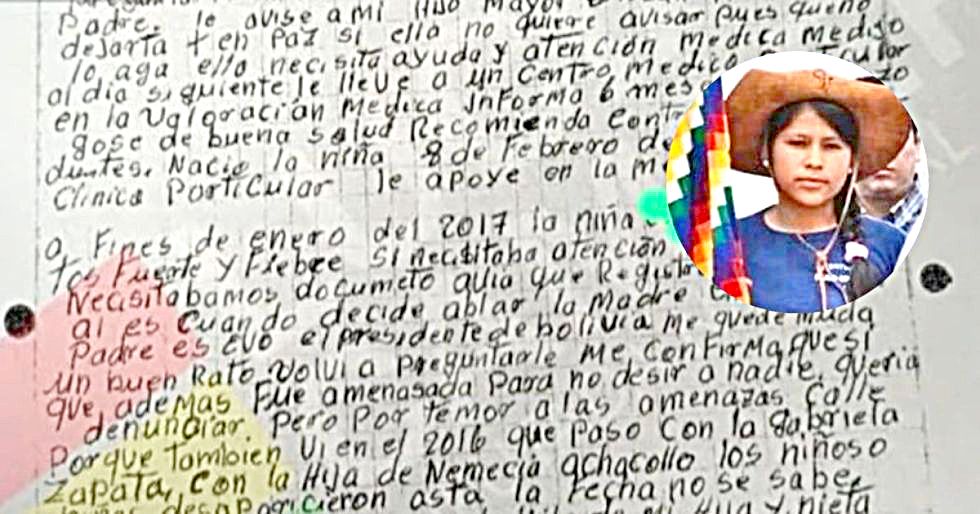 Padre. le avise a mi Hijo Mayor
dejarta + en Paz si ella no quiere avisar pues queno
lo aga ella necisita ayuda y atención medica medijo
al dia siguiente le lleve a un Centro medico
en la Valoración Medica Informa 6 mes
gose de buena salud Recomienda
Nacio la niña 8 de Febrero de
Clinica Particular le apoye en la
a Fines de enero del 2017 la niña
tos Fuerte y Fiebre si necisitaba atención
Necisitabamos documeto quia que
ai es cuando decide ablar la Madre
Padre es evo el presidente de bolivia me quede muda
un buen Rato volvi a preguntarle me confirma que si
que, ademas Fue amenasada para no desir a nadie. queria
denunciar. Pero Por temor a las amenazas calle
Porque tambien vi en el 2016 que paso con la gabriela
Zapata, con la Hija de Nemecia achacollo los niñoso
desaparicieron asta la Fecha no se sabe
mi Hija y nieta